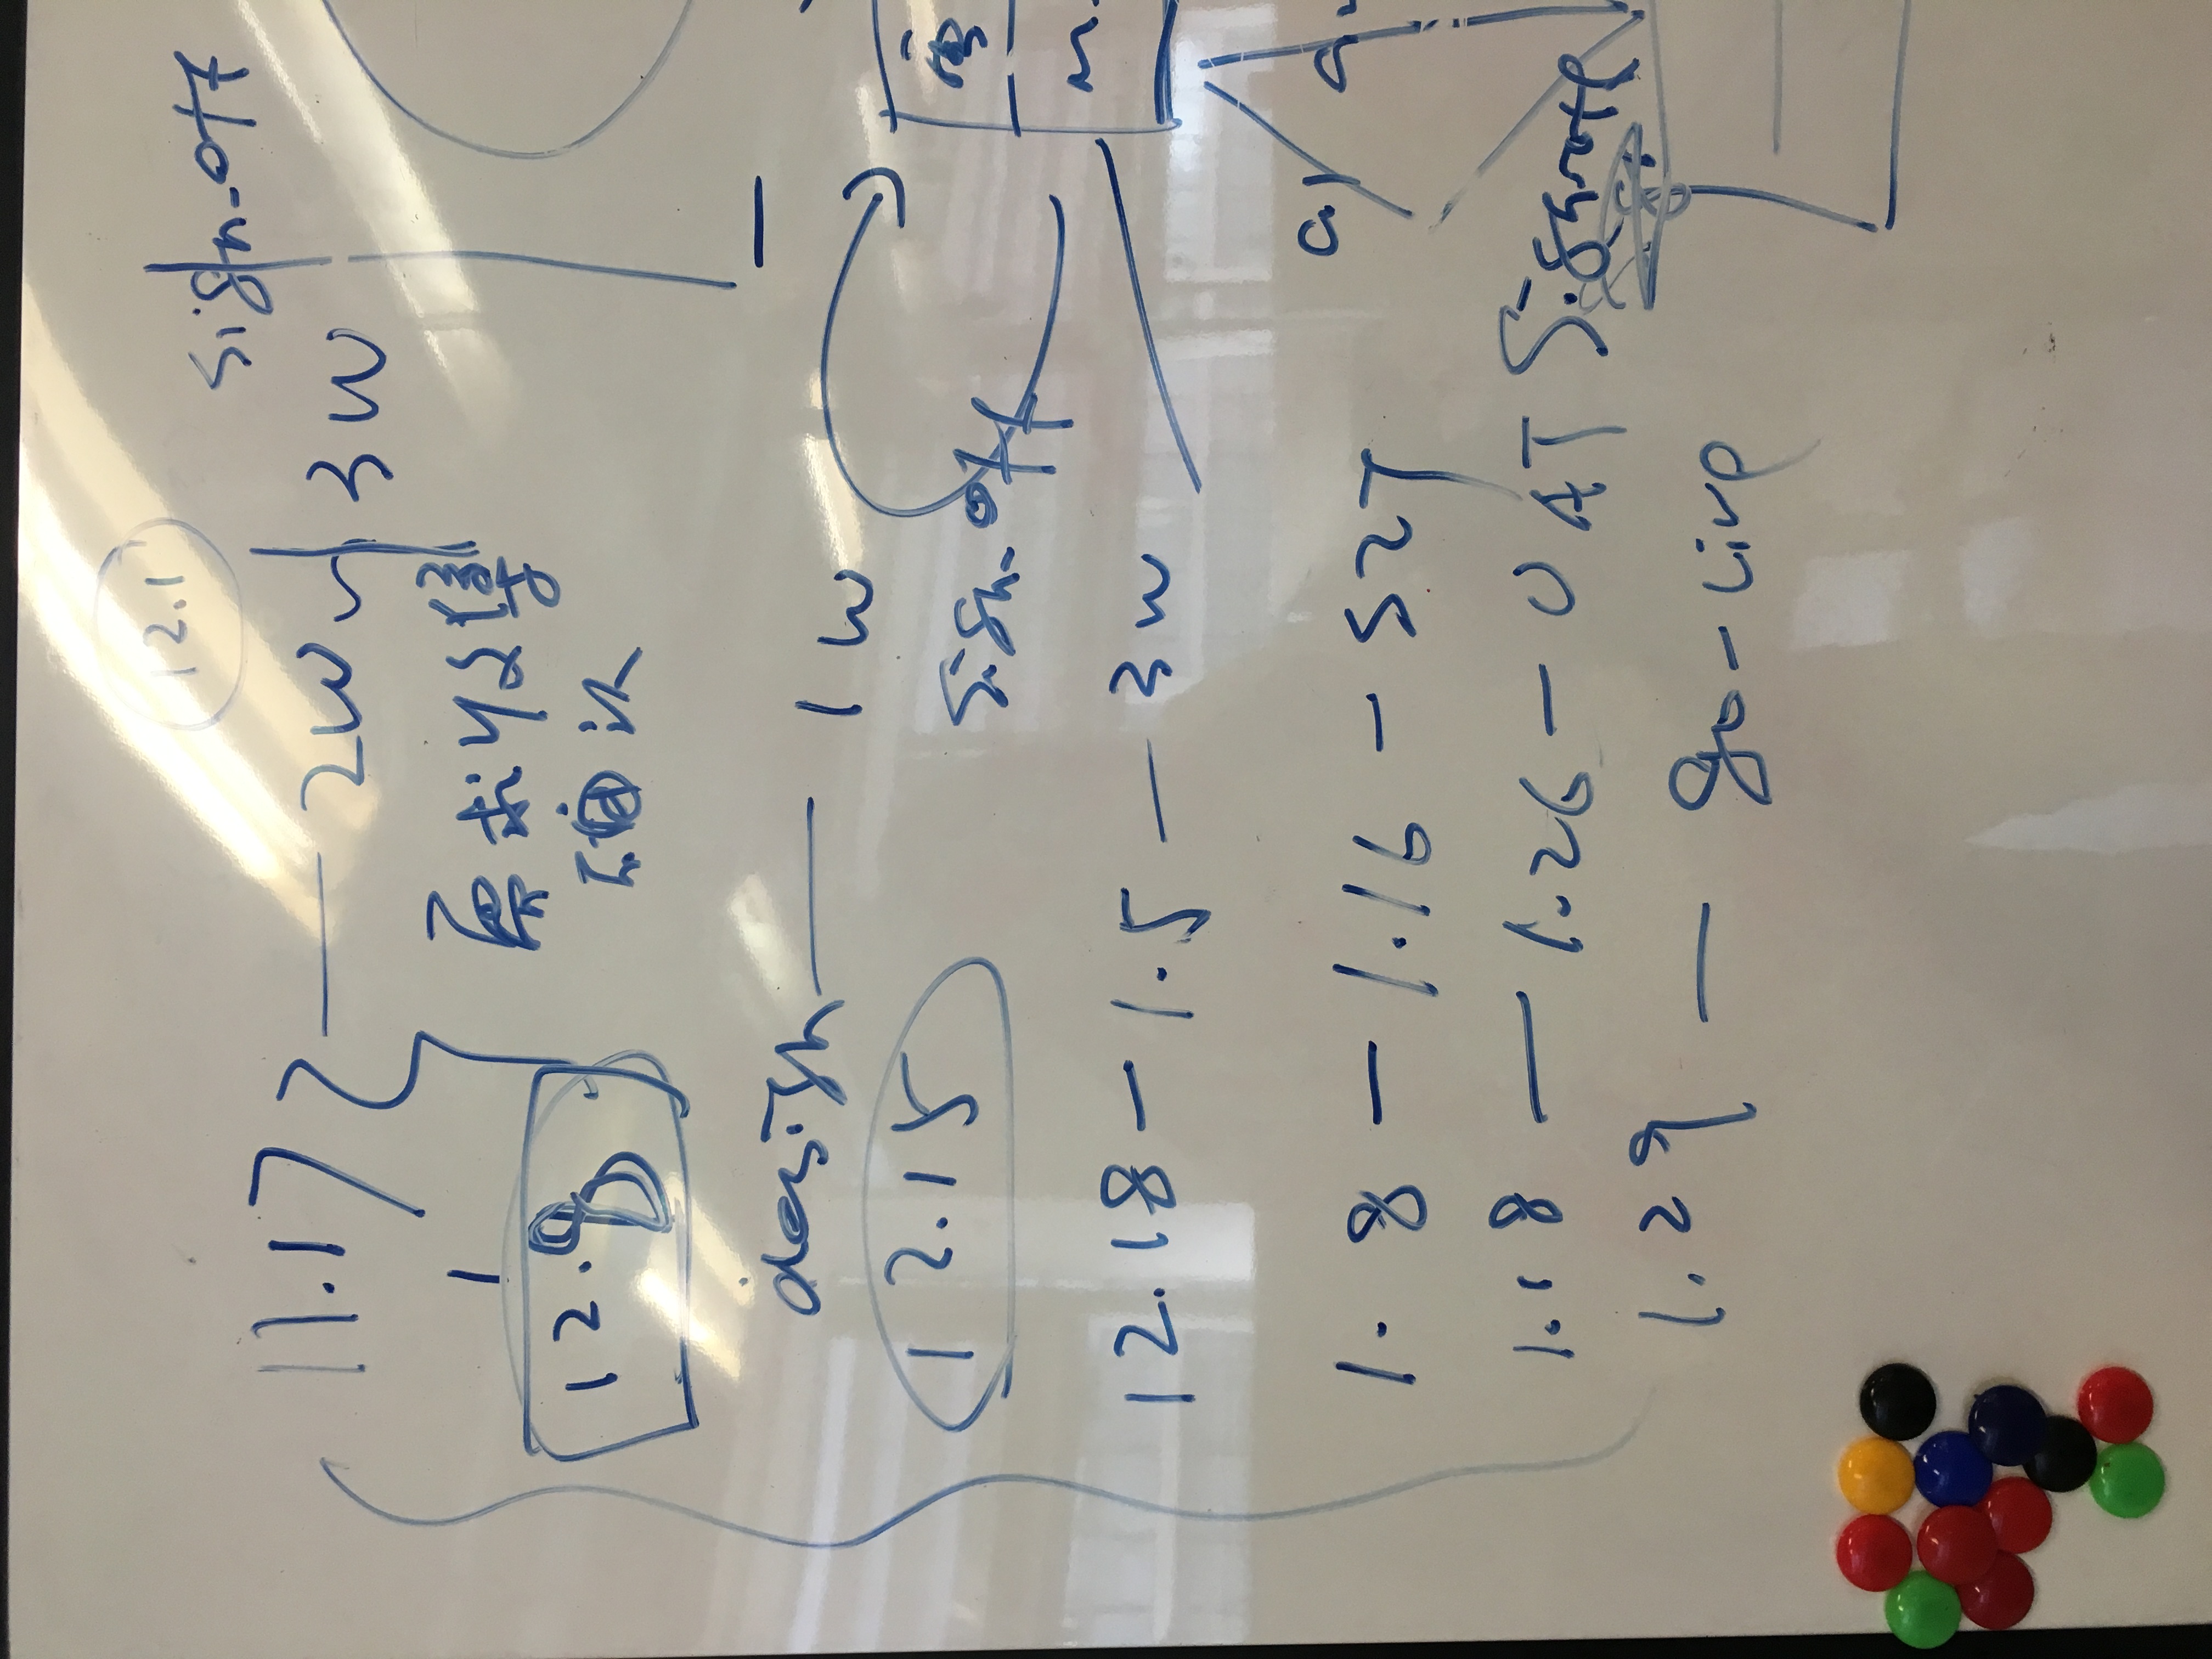 12.1
sign-off
11.17 — 2W 3W
需求收集
确认
12.8
design — 1w
12.15
sign-off
需
12.18 — 1.5 — 3w
a.1
1.8 — 1.16 — SIT
1.18 — 1.26 — UAT Sign-off
1.29 — go-live